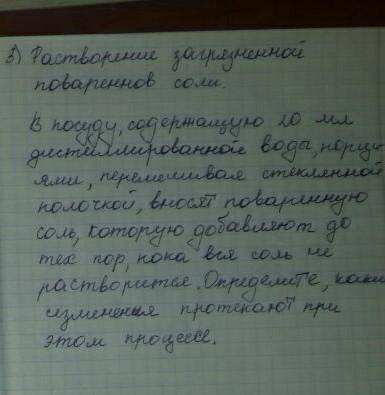 в) Растворение загрязненной
поваренной соли.
В посуду, содержащую 20 мл
дистиллированной воды, порци
ями, перемешивая стеклянной
полочкой, вносят поваренную
соль, которую добавляют до
тех пор, пока вся соль не
растворится. Определите, каки
изменения протекают при
этом процессе.